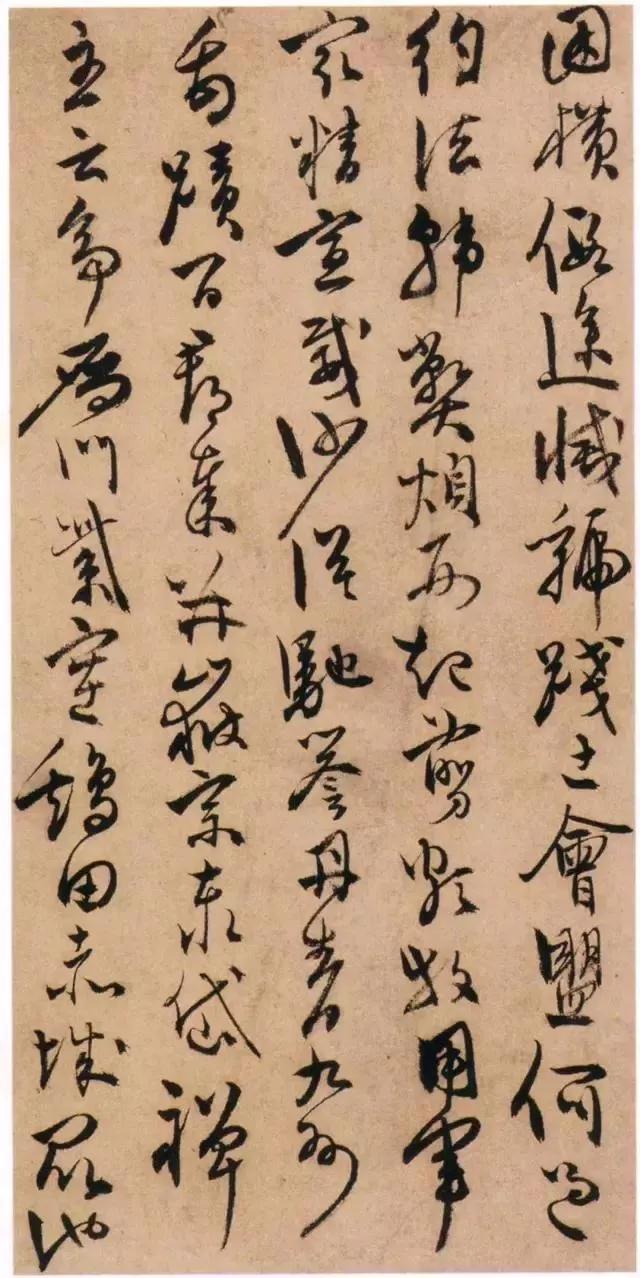 困橫假途滅虢踐土會盟何遵
約法韓弊煩刑起翦頗牧用軍
最精宣威沙漠馳譽丹青九州
禹蹟百郡秦并嶽宗泰岱禪
主云亭鴈門紫塞鷄田赤城昆池